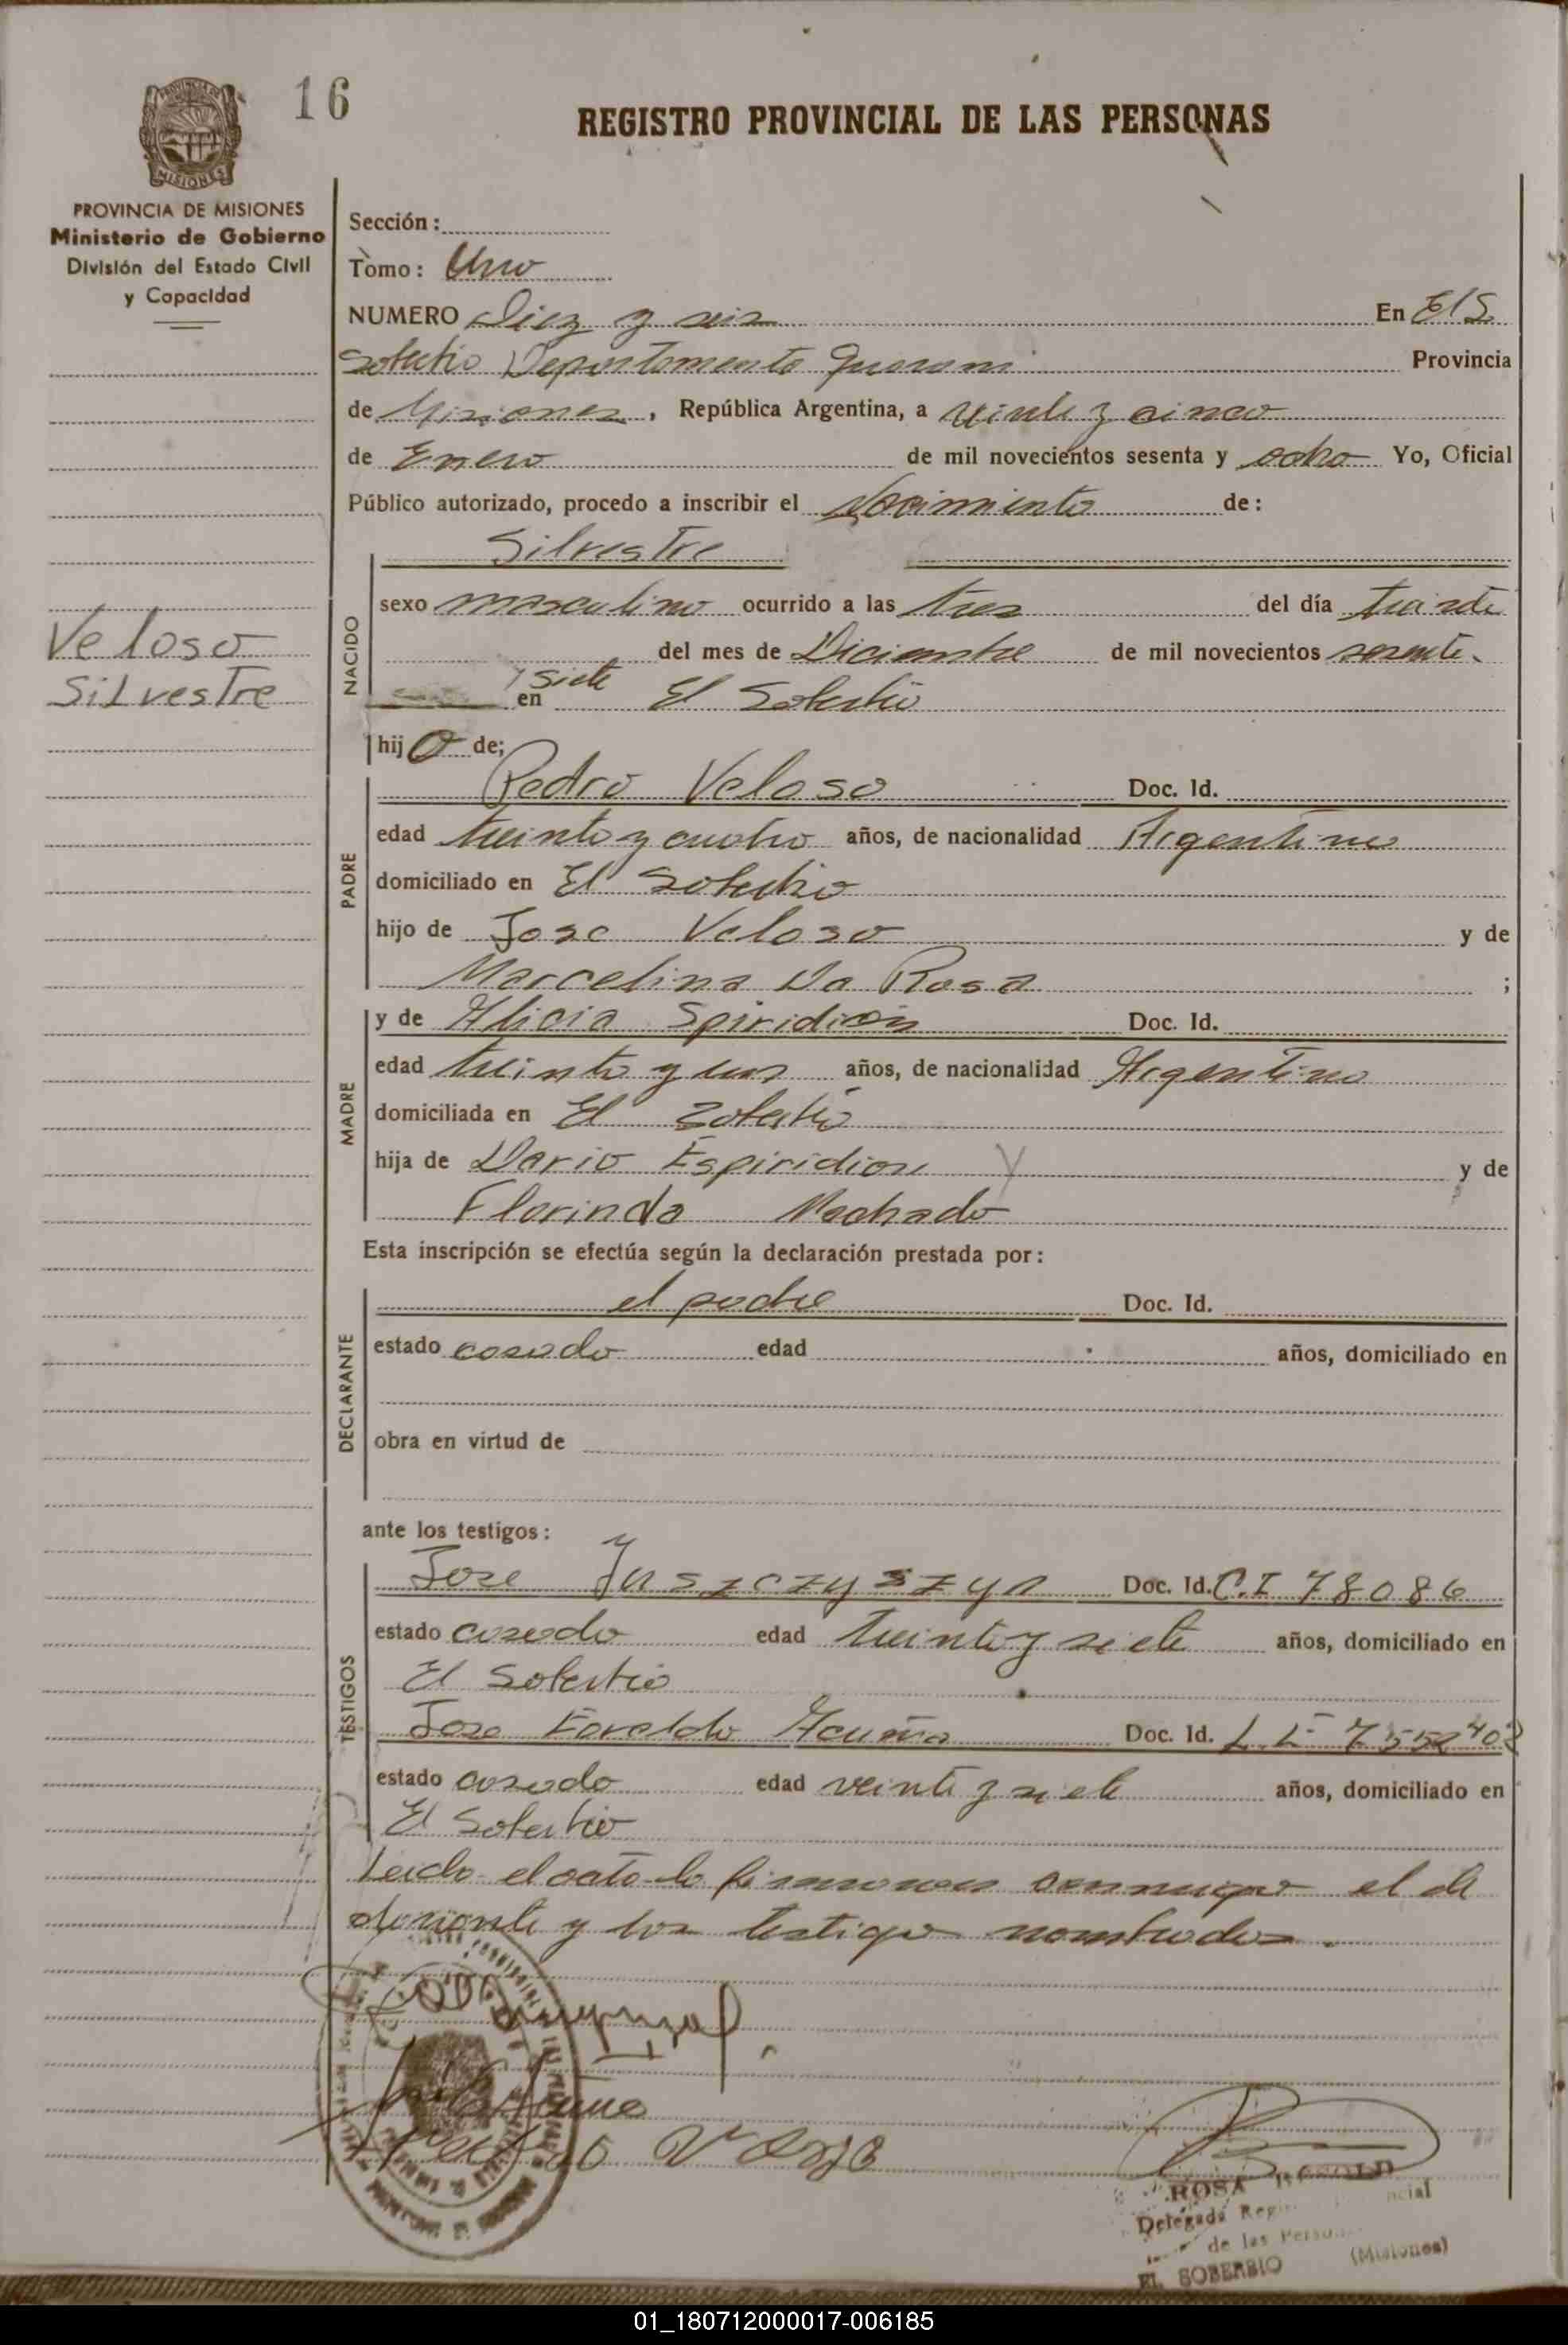 16
REGISTRO PROVINCIAL DE LAS PERSONAS
PROVINCIA DE
MISIONES
PROVINCIA DE MISIONES
Ministerio de Gobierno
División del Estado Civil
y Capacidad
Veloso
Silvestre
Sección:
Tomo: Uno
NUMERO Diez y seis En El S
Soberbio Departamento Guarani Provincia
de Misiones, República Argentina, a veinte y cinco
de Enero de mil novecientos sesenta y ocho Yo, Oficial
Público autorizado, procedo a inscribir el Nacimiento de:
Silvestre
NACIDO
sexo masculino ocurrido a las tres del día treinta
del mes de Diciembre de mil novecientos sesenta
y siete
en El Soberbio
hijo de;
PADRE
Pedro Veloso Doc. Id.
edad treinta y cuatro años, de nacionalidad Argentino
domiciliado en El Soberbio
hijo de Jose Veloso y de
Marcelina Da Rosa ;
MADRE
y de Alicia Spiridion Doc. Id.
edad treinta y años, de nacionalidad Argentina
domiciliada en El Soberbio
hija de Dario Espiridion y de
Florinda Machado
Esta inscripción se efectúa según la declaración prestada por:
DECLARANTE
el padre Doc. Id.
estado casado edad años, domiciliado en
obra en virtud de
ante los testigos:
TESTIGOS
Jose Juszczyszyn Doc. Id. C.I 78086
estado casado edad treinta y siete años, domiciliado en
El Soberbio
Jose Acuña Doc. Id. L.E 7552402
estado casado edad veinte y siete años, domiciliado en
El Soberbio
Leido el acta lo firman conmigo el de
clarante y los testigos nombrados.
ROSA
Delegada
de las
EL SOBERBIO (Misiones)
01_180712000017-006185